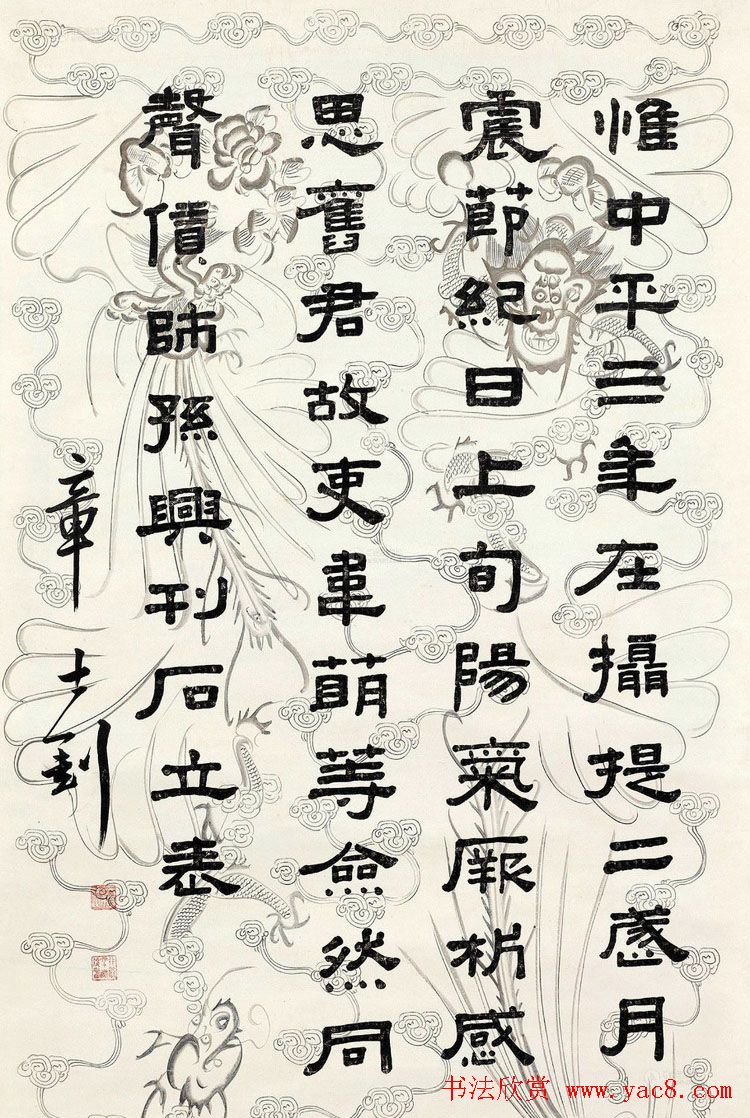 惟中平三年在攝提二歲月
震節紀日上旬陽氣厥析感
思舊君故吏韋萌等僉然同
聲賃師孫興刊石立表
章士釗
书法欣赏 www.yac8.com